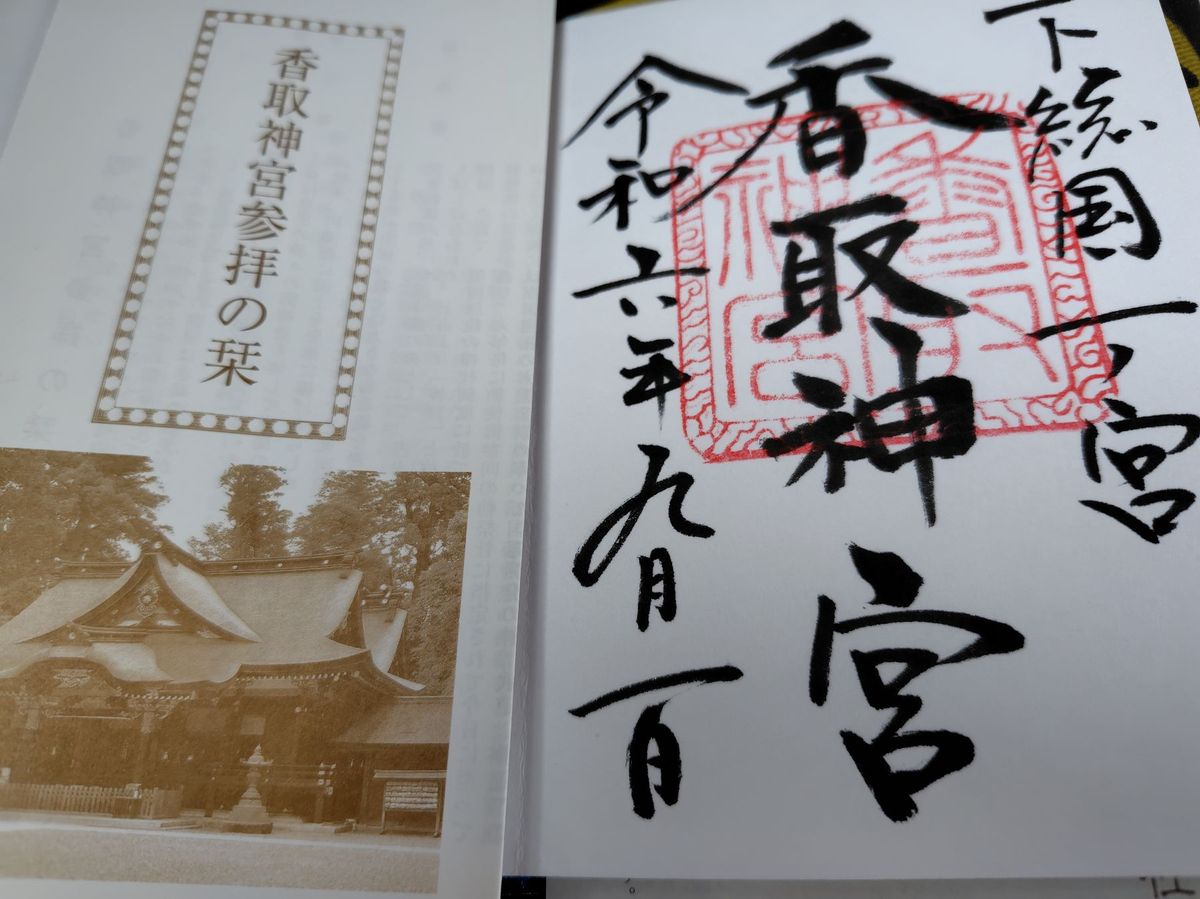 下総国一ノ宮
香取神宮
香取神宮
令和六年九月一日
香取神宮参拝の栞